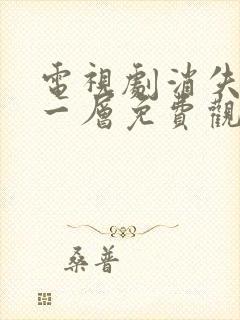 電視劇消失
一層免費觀
桑普